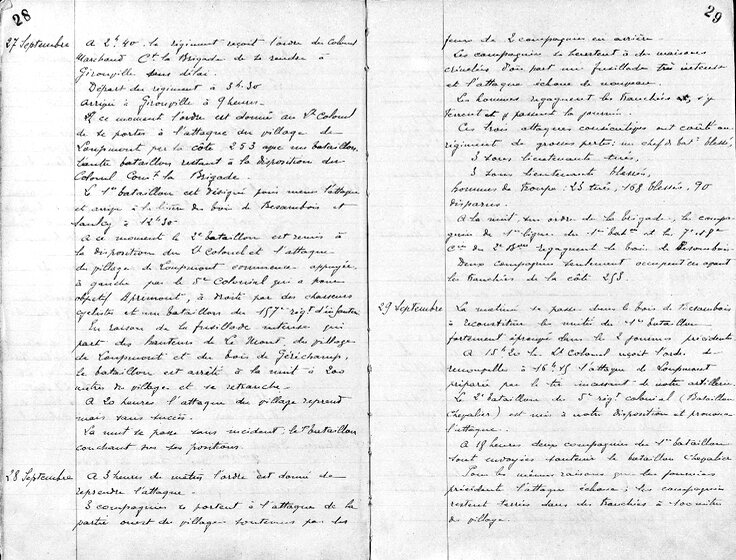 28
27 Septembre
A 2h40 le régiment reçoit l'ordre du Colonel
Marchand Ct la Brigade de se rendre à
Gironville sans délai.
Départ du régiment à 3h.30
Arrivé à Gironville à 9 heures.
A ce moment l'ordre est donné au Lt Colonel
de se porter à l'attaque du village de
Loupmont par la côte 253 avec un bataillon
l'autre bataillon restant à la disposition du
Colonel Comt la Brigade.
Le 1er bataillon est désigné pour mener l'attaque
et arrive à la lisière du bois de Besombois et
à 12h30
A ce moment le 2e bataillon est remis à
la disposition du Lt Colonel et l'attaque
du village de Loupmont commence appuyée
à gauche par le 5e Colonial qui a pour
objectif Apremont, à droite par des chasseurs
cyclistes et un bataillon du 157e régt d'infanterie
En raison de la fusillade intense qui
part des hauteurs de Le Mont, du village
de Loupmont et du bois de Géréchamps,
le bataillon est arrêté à la nuit à 200
mètres du village et se retranche.
A 20 heures l'attaque du village reprend
mais sans succès.
La nuit se passe sans incident, le 1er bataillon
couchant sur ses positions.
28 Septembre
A 3 heures du matin l'ordre est donné de
reprendre l'attaque.
3 compagnies se portent à l'attaque de la
partie ouest du village soutenues par les
29
feux de 2 compagnies en arrière.
Les compagnies se heurtent à des maisons
crénelées d'où part une fusillade très intense
et l'attaque échoue de nouveau.
Les hommes regagnent les tranchées et s'y
terrent et y passent la journée.
Ces trois attaques consécutives ont coûté au
régiment de grosses pertes, un chef de bat. blessé,
3 sous lieutenants tués,
3 sous lieutenants blessés,
hommes de troupe: 23 tués, 168 blessés, 90
disparus.
A la nuit, sur ordre de la brigade, les compa-
gnies de 1ère ligne du 1er baton et les 7e 18e
Cies du 2e Bon regagnent le bois de Besombois
Deux compagnies seulement occupent
les tranchées de la côte 253.
29 Septembre
La matinée se passe dans le bois de Besombois
à reconstituer les unités du 1er bataillon
fortement éprouvé dans les 2 journées précédentes
A 15h20 le Lt Colonel reçoit l'ordre de
renouveler à 16h15 l'attaque de Loupmont
préparée par le tir incessant de notre artillerie.
Le 2e bataillon du 5e régt colonial (Bataillon
Chevalier) est mis à notre disposition et prononce
l'attaque.
A 18 heures deux compagnies du 1er bataillon
sont envoyées soutenir le bataillon Chevalier
Pour les mêmes raisons que les journées
précédentes l'attaque échoue; les compagnies
restent terrées dans des tranchées à 100 mètres
du village.